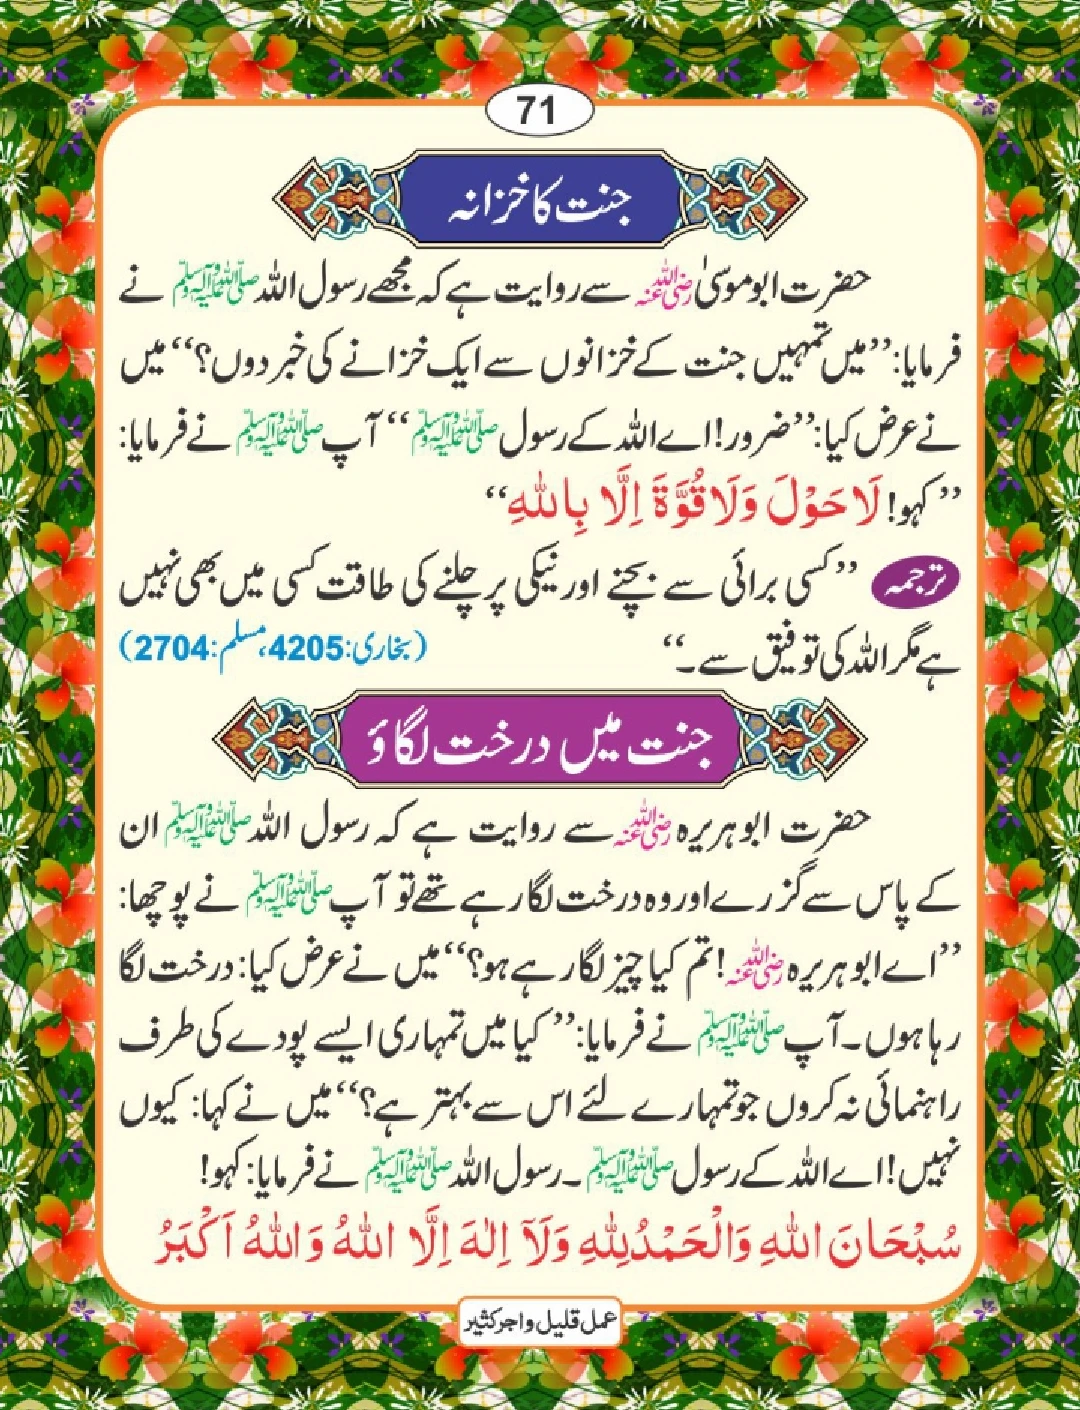 71
جنت کا خزانہ
حضرت ابوموسیٰ رضی اللہ عنہ سے روایت ہے کہ مجھے رسول اللہ صلی اللہ علیہ وآلہ وسلم نے
فرمایا: ’’میں تمہیں جنت کے خزانوں سے ایک خزانے کی خبر دوں؟‘‘ میں
نے عرض کیا: ’’ضرور! اے اللہ کے رسول صلی اللہ علیہ وآلہ وسلم‘‘ آپ صلی اللہ علیہ وآلہ وسلم نے فرمایا:
’’کہو! لَا حَوْلَ وَلَا قُوَّةَ اِلَّا بِاللهِ‘‘
ترجمہ ’’کسی برائی سے بچنے اور نیکی پر چلنے کی طاقت کسی میں بھی نہیں
ہے مگر اللہ کی توفیق سے۔‘‘ (بخاری: 4205، مسلم: 2704)
جنت میں درخت لگاؤ
حضرت ابوہریرہ رضی اللہ عنہ سے روایت ہے کہ رسول اللہ صلی اللہ علیہ وآلہ وسلم ان
کے پاس سے گزرے اور وہ درخت لگا رہے تھے تو آپ صلی اللہ علیہ وآلہ وسلم نے پوچھا:
’’اے ابوہریرہ رضی اللہ عنہ! تم کیا چیز لگا رہے ہو؟‘‘ میں نے عرض کیا: درخت لگا
رہا ہوں۔ آپ صلی اللہ علیہ وآلہ وسلم نے فرمایا: ’’کیا میں تمہاری ایسے پودے کی طرف
راہنمائی نہ کروں جو تمہارے لئے اس سے بہتر ہے؟‘‘ میں نے کہا: کیوں
نہیں! اے اللہ کے رسول صلی اللہ علیہ وآلہ وسلم۔ رسول اللہ صلی اللہ علیہ وآلہ وسلم نے فرمایا: کہو!
سُبْحَانَ اللهِ وَالْحَمْدُ لِلهِ وَلَآ اِلٰهَ اِلَّا اللهُ وَاللهُ اَكْبَرُ
عمل قلیل و اجر کثیر